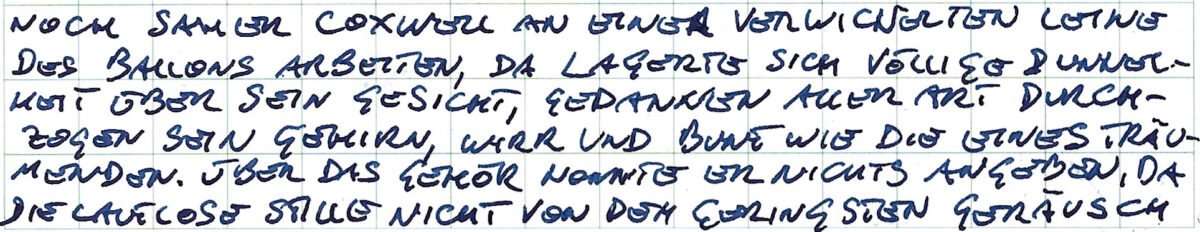 NOCH SAH ER COXWELL AN EINER VERWICKELTEN LEINE
DES BALLONS ARBEITEN, DA LAGERTE SICH VÖLLIGE DUNKEL-
HEIT ÜBER SEIN GESICHT, GEDANKEN ALLER ART DURCH-
ZOGEN SEIN GEHIRN, WIRR UND BUNT WIE DIE EINES TRÄU-
MENDEN. ÜBER DAS GEHÖR KONNTE ER NICHTS ANGEBEN, DA
DIE LAUTLOSE STILLE NICHT VON DEM GERINGSTEN GERÄUSCH